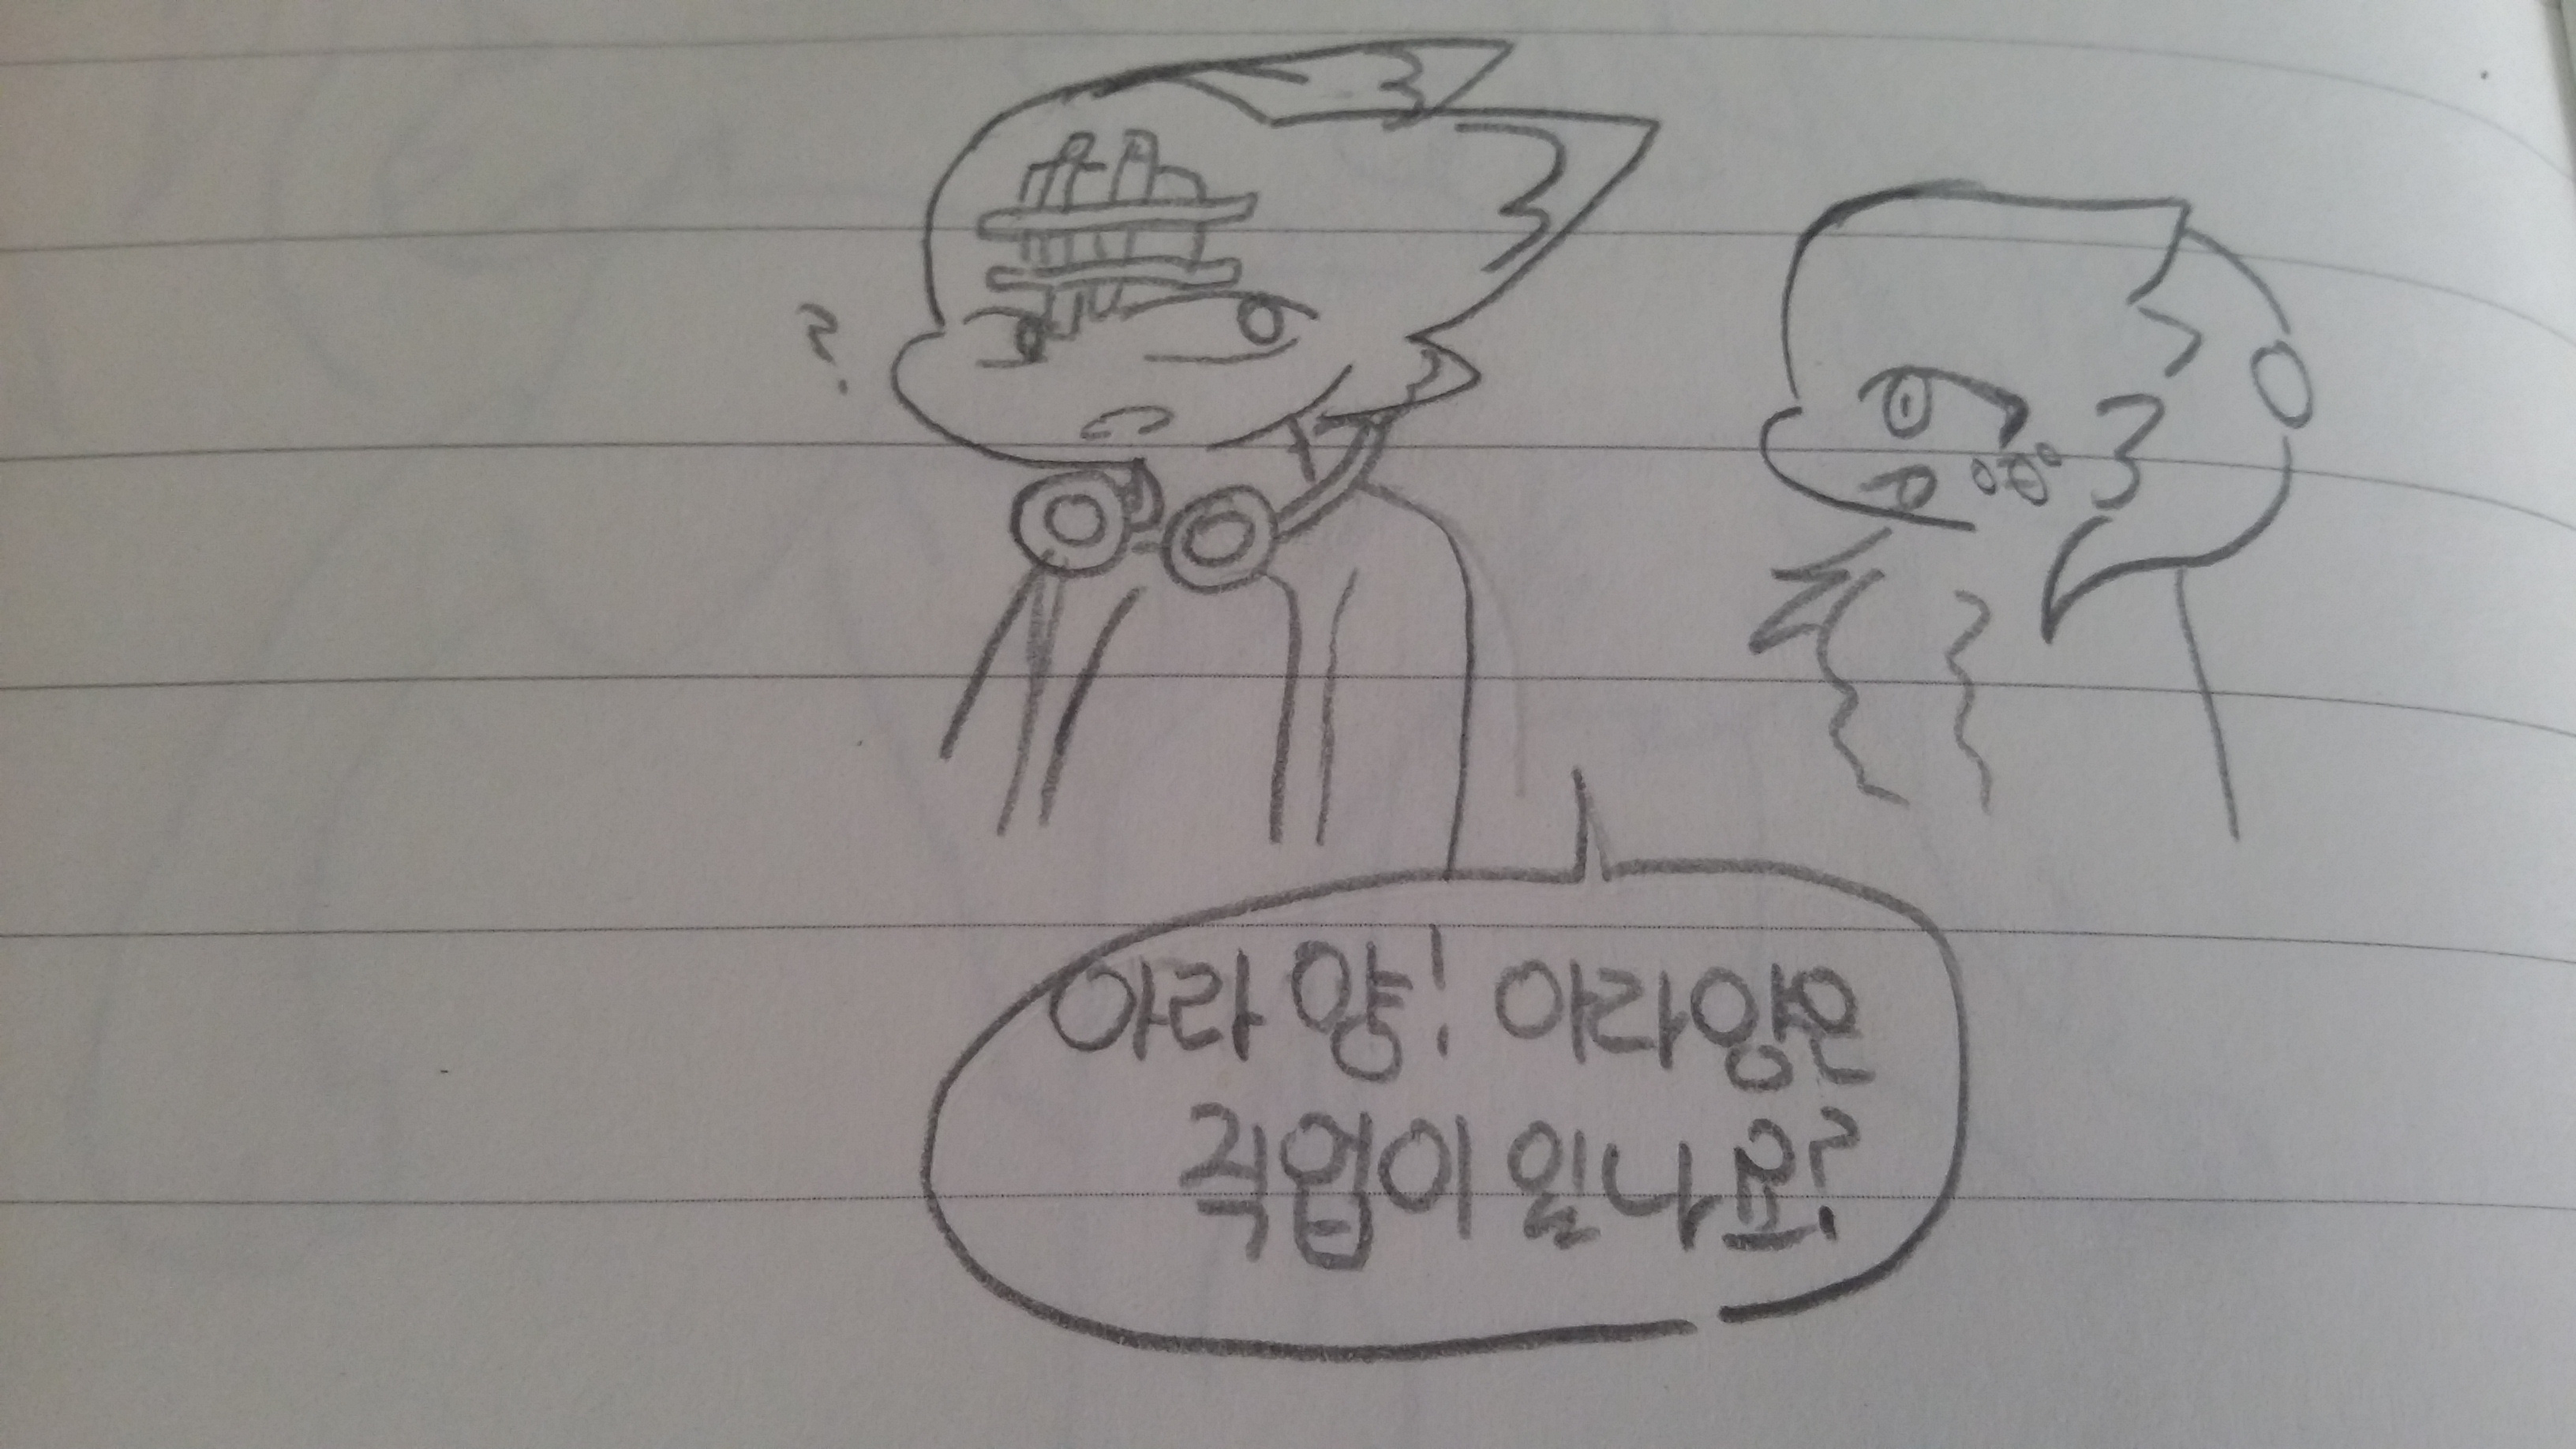 ?
아라 양! 아라양은
직업이 있나요?